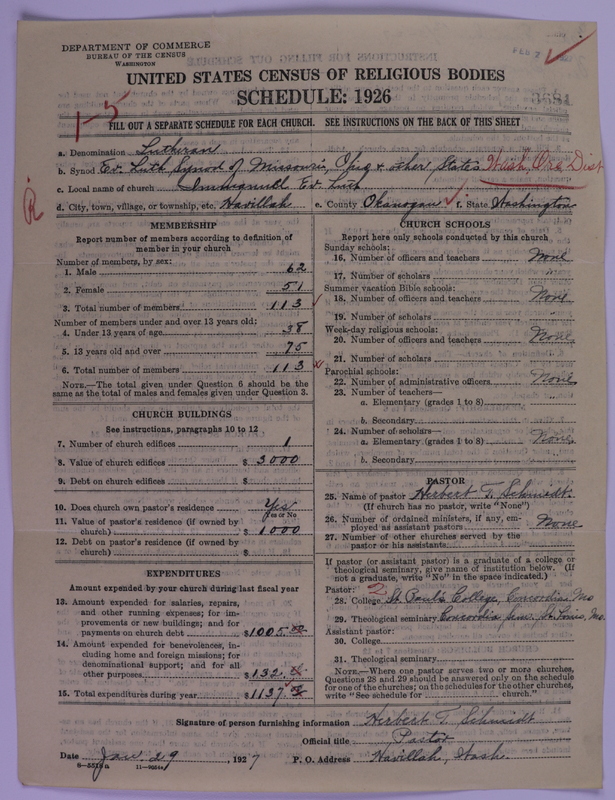 DEPARTMENT OF COMMERCE
BUREAU OF THE CENSUS
WASHINGTON
FEB 7
UNITED STATES CENSUS OF RELIGIOUS BODIES
SCHEDULE: 1926
3684
1-5
FILL OUT A SEPARATE SCHEDULE FOR EACH CHURCH. SEE INSTRUCTIONS ON THE BACK OF THIS SHEET
a. Denomination Lutheran
b. Synod Ev. Luth Synod of Missouri, Ohio & other States Wash, Ore Dist
c. Local name of church Immanuel Ev. Luth
d. City, town, village, or township, etc. Havillah e. County Okanogan f. State Washington
MEMBERSHIP
Report number of members according to definition of member in your church
Number of members, by sex:
1. Male 62
2. Female 51
3. Total number of members 113
Number of members under and over 13 years old:
4. Under 13 years of age 38
5. 13 years old and over 75
6. Total number of members 113
NOTE.—The total given under Question 6 should be
same as the total of males and females given under Question 3.
CHURCH BUILDINGS
See instructions, paragraphs 10 to 12
7. Number of church edifices 1
8. Value of church edifices $ 3000
9. Debt on church edifices $
10. Does church own pastor's residence Yes
Yes or No
11. Value of pastor's residence (if owned by
church) $ 1000
12. Debt on pastor's residence (if owned by
church) $
EXPENDITURES
Amount expended by your church during last fiscal year
13. Amount expended for salaries, repairs,
and other running expenses; for im-
provements or new buildings; and for
payments on church debt $1005.
14. Amount expended for benevolences, in-
cluding home and foreign missions; for
denominational support; and for all
other purposes $ 132.
15. Total expenditures during year $1137.
CHURCH SCHOOLS
Report here only schools conducted by this church
Sunday schools:
16. Number of officers and teachers None
17. Number of scholars
Summer vacation Bible schools:
18. Number of officers and teachers None
19. Number of scholars
Week-day religious schools:
20. Number of officers and teachers None
21. Number of scholars
Parochial schools:
22. Number of administrative officers None
23. Number of teachers—
a. Elementary (grades 1 to 8)
b. Secondary
24. Number of scholars—
a. Elementary (grades 1 to 8) None
b. Secondary
PASTOR
25. Name of pastor Herbert T. Schmidt.
(If church has no pastor, write "None")
26. Number of ordained ministers, if any, em-
ployed as assistant pastors None
27. Number of other churches served by the
pastor or his assistants
If pastor (or assistant pastor) is a graduate of a college or
theological seminary, give name of institution below. (If
not a graduate, write "No" in the space indicated.)
Pastor: 2
28. College St. Paul's College, Concordia, Mo
29. Theological seminary Concordia Sem. St. Louis, Mo.
Assistant pastor:
30. College
31. Theological seminary
NOTE.—Where one pastor serves two or more churches,
Questions 28 and 29 should be answered only on the schedule
for one of the churches; on the schedules for the other churches,
write "See schedule for church."
Signature of person furnishing information Herbert T. Schmidt
Official title Pastor
Date Jan. 29, 1927 P. O. Address Havillah, Wash.
8-5518a 11-9024a